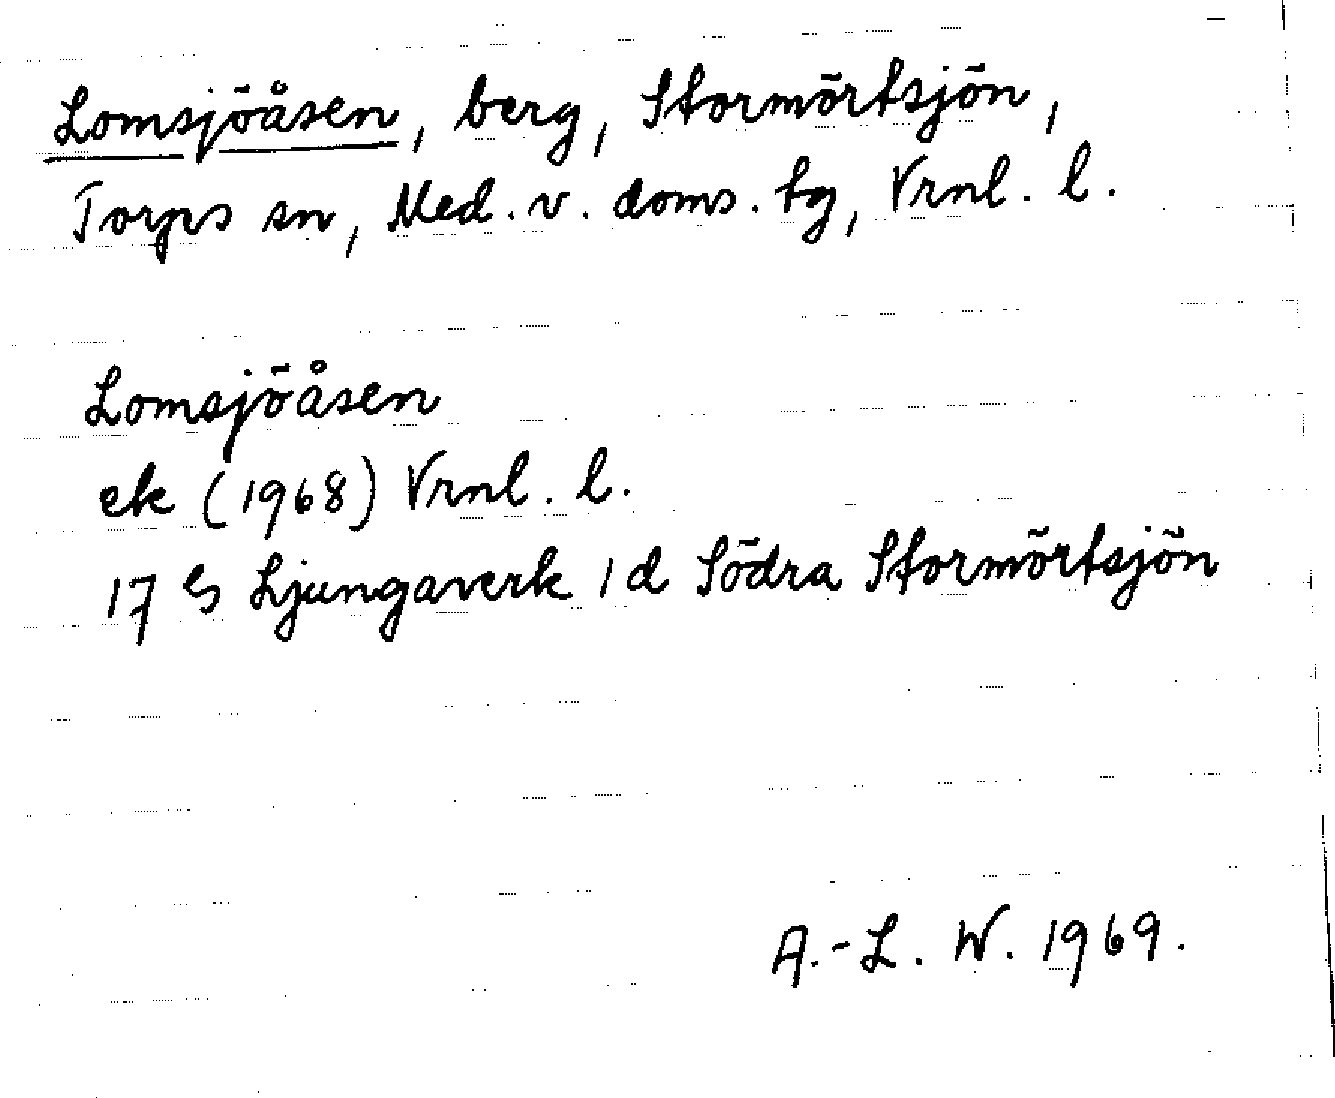 Lomsjöåsen, berg, Stormörtsjön,
Torps sn, Med. v. doms. tg, Vrnl. l.
Lomsjöåsen
ek (1968) Vrnl. l.
17 G Ljungaverk 1 d Södra Stormörtsjön
A.-L. W. 1969.